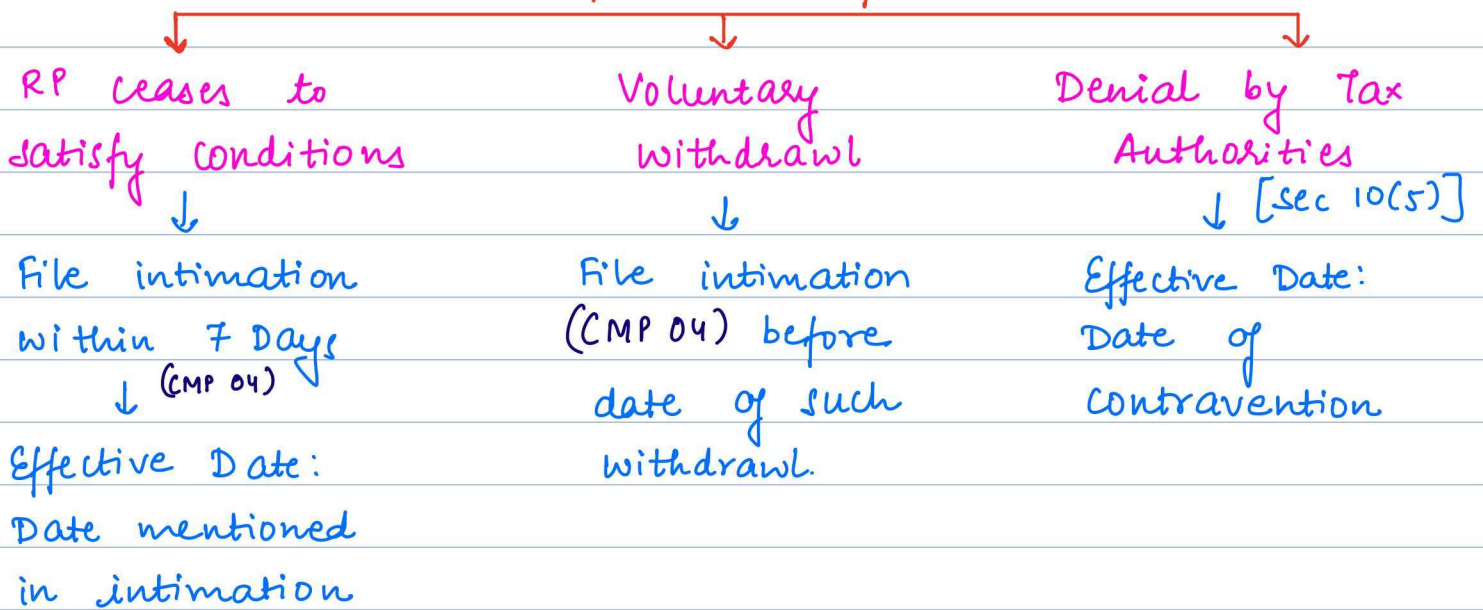 RP ceases to
satisfy conditions
↓
File intimation
within 7 Days
↓ (CMP 04)
Effective Date:
Date mentioned
in intimation
Voluntary
withdrawl
↓
File intimation
(CMP 04) before
date of such
withdrawl.
Denial by Tax
Authorities
↓ [sec 10(5)]
Effective Date:
Date of
contravention